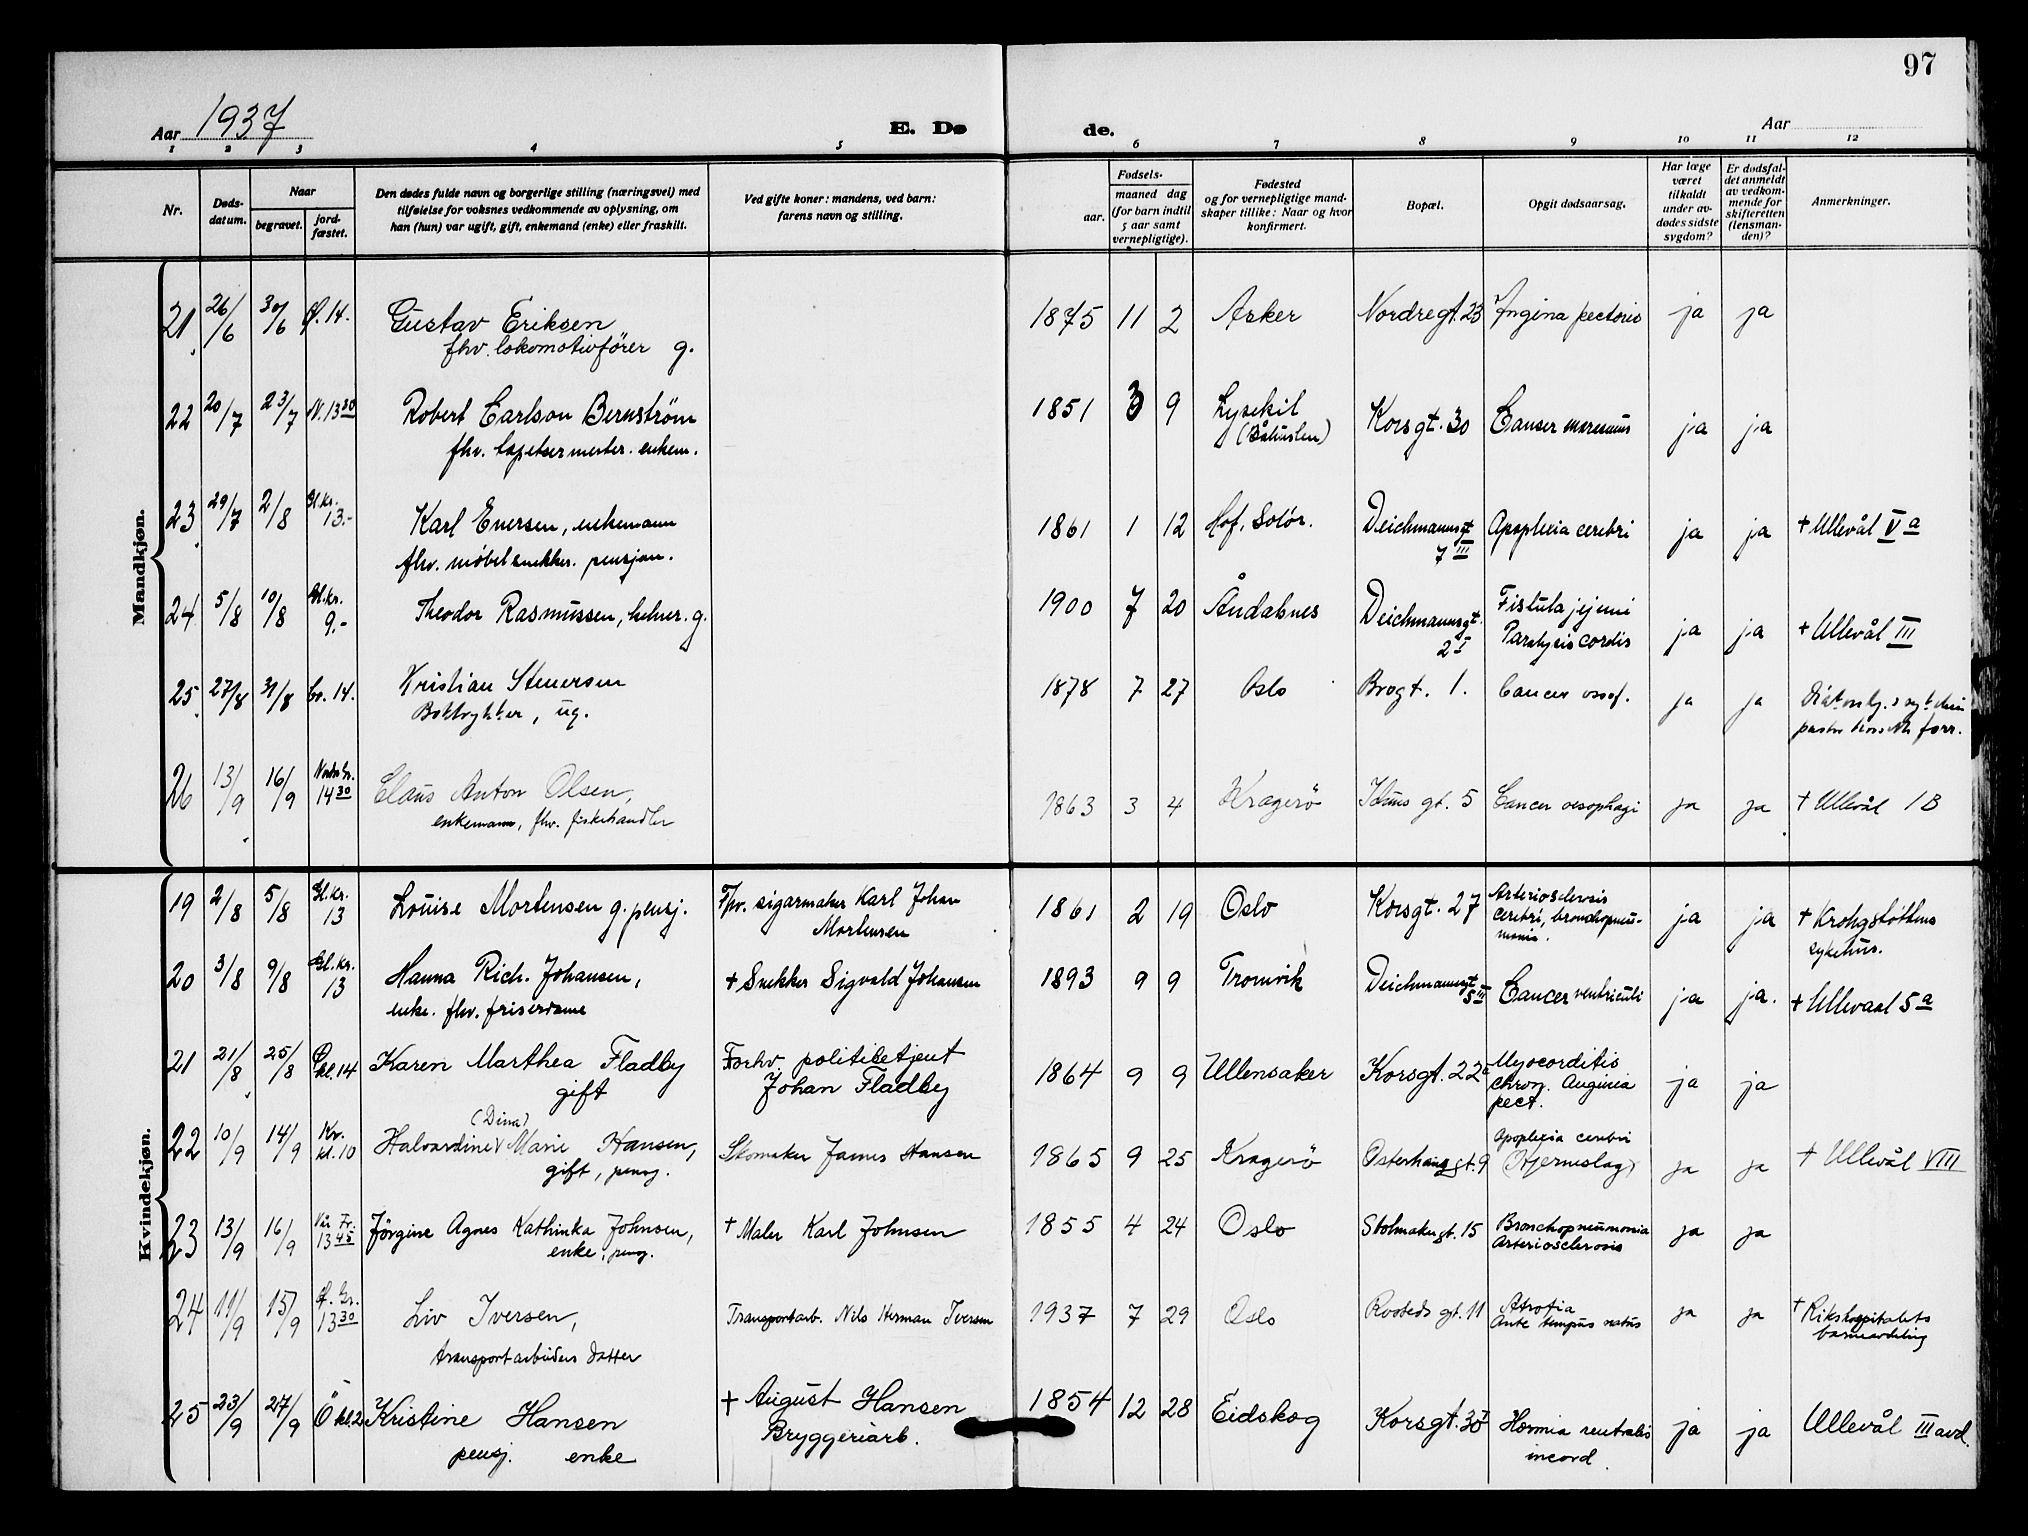 97
Aar 1937 E. Dø de. Aar
1 2 3 4 5 6 7 8 9 10 11 12
Nr.
Døds-
datum.
Naar
begravet.
jord-
fæstet.
Den dødes fulde navn og borgerlige stilling (næringsvei) med
tilføielse for voksnes vedkommende av oplysning, om
han (hun) var ugift, gift, enkemand (enke) eller fraskilt.
Ved gifte koner: mandens, ved barn:
farens navn og stilling.
Fødsels-
aar.
maaned dag
(for barn indtil
5 aar samt
vernepligtige).
Fødested
og for vernepligtige mand-
skaper tillike: Naar og hvor
konfirmert.
Bopæl.
Opgit dødsaarsag.
Har læge
været
tilkaldt
under av-
dødes sidste
sygdom?
Er dødsfal-
det anmeldt
av vedkom-
mende for
skifteretten
(lensman-
den)?
Anmerkninger.
Mandkjøn.
21 26/6 30/6 14. Gustav Eriksen 1875 11 2 Asker Nordregt. 23 Angina pectoris ja ja
fhv. lokomotivfører g.
22 20/7 23/7 N. 13 30 Robert Carlson Bernström 1851 3 9 Lysekil Korsgt. 30 ja ja
(Båhuslen)
fhv. tapetsermester. enkem.
23 29/7 2/8 Gl. Kr. 13.- Karl Enersen, enkemann 1861 1 12 Hof, Solör. Deichmannsgt 7 III Apoplexia cerebri ja ja + Ullevål V a
fhv. möbelsnekker. pensjon.
24 5/8 10/8 Gl. Kr. 9.- Theodor Rasmussen, kelner. g. 1900 7 20 Åndalsnes Deichmannsgt. 2 I Fistula jejuni ja ja + Ullevål III
Paralysis cordis
25 27/8 31/8 14. Kristian Stenersen 1878 7 27 Oslo Brogt. 1. Cancer oesof. ja ja
Boktrykker, ug. forr.
26 13/9 16/9 Nordre Gr. 14 30 Claus Anton Olsen, 1863 3 4 Kragerö gt. 5 Cancer oesophagi ja ja + Ullevål 1 B
enkemann, fhv. fiskehandler
Kvindekjøn.
19 2/8 5/8 Gl. Kr. 13 Louise Mortensen g. pensj. Fhv. sigarmaker Karl Johan 1861 2 19 Oslo Korsgt. 27 Arteriosclerosis ja ja + Krohgstöttens
Mortensen cerebri, bronchopneu-
monia. sykehus.
20 3/8 9/8 Gl. Kr. 13 Hanna Rich. Johansen, + Snekker Sigvald Johansen 1893 9 9 Tromvik Deichmannsgt 5 III Cancer ventriculi ja ja. + Ullevaal 5 a
enke. fhv. friserdame
21 21/8 25/8 kl. 14 Karen Marthea Fladby Forhv. politibetjent 1864 9 9 Ullensaker Korsgt. 22a Myocarditis ja ja
gift Johan Fladby chron. Angina
pect.
(Dina)
22 10/9 14/9 Kr. kl. 10 Halvardine Marie Hansen, Skomaker James Hansen 1865 9 25 Kragerö Osterhausgt. 9 Apoplexia cerebri ja ja + Ullevål VIII
gift, pensj. (Hjerneslag)
23 13/9 16/9 Vår Fr. 13 45 Jörgine Agnes Kathinka Johnsen, + Maler Karl Johnsen 1855 4 24 Oslo Stolmakergt. 15 Bronchopneumonia ja ja
enke, pensj. Arteriosclerosis
24 11/9 15/9 Gr. 13 30 Liv Iversen, Transportarb. Nils Herman Iversen 1937 7 29 Oslo Rosteds gt. 11 Atrofia ja ja + Rikshospitalets
Ante tempus natus barneavdeling
transportarbeiders datter
25 23/9 27/9 Ö kl. 2 Kristine Hansen + August Hansen 1854 12 28 Eidskog Korsgt. 30 I Hernia ventralis ja ja Ullevål III avd.
pensj. enke Bryggeriarb. incarc.